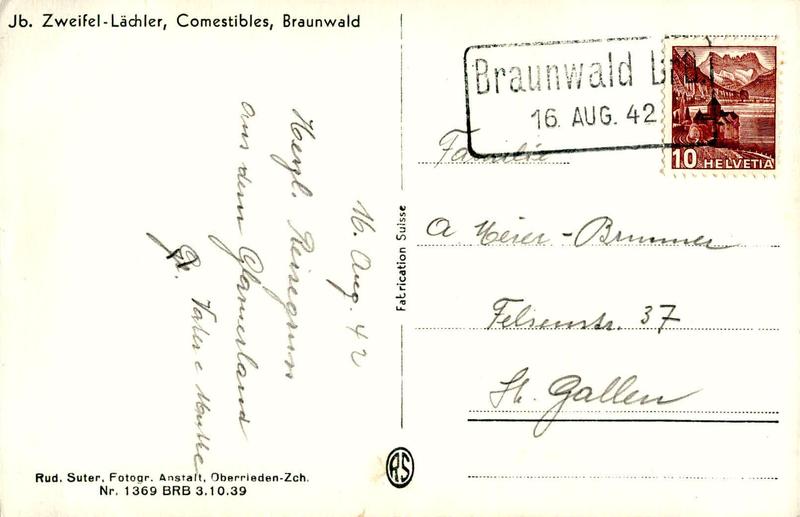 Jb. Zweifel-Lächler, Comestibles, Braunwald
Braunwald
16. AUG. 42
10 HELVETIA
16. Aug. 42
Herzl. Reisegruss
aus dem Glarnerland
Vater & Mutter
Familie
A Meier-Brunner
Felsenstr. 37
St. Gallen
Fabrication Suisse
RS
Rud. Suter, Fotogr. Anstalt, Oberrieden-Zch.
Nr. 1369 BRB 3.10.39